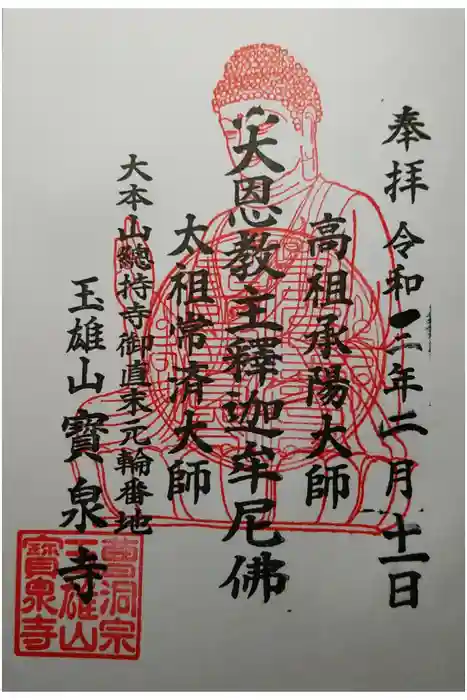 奉拝 令和三年二月十一日
高祖承陽大師
大恩教主釋迦牟尼佛
太祖常済大師
大本山總持寺御直末元輪番地
玉雄山 寶泉寺
曹洞宗
玉雄山
寶泉寺